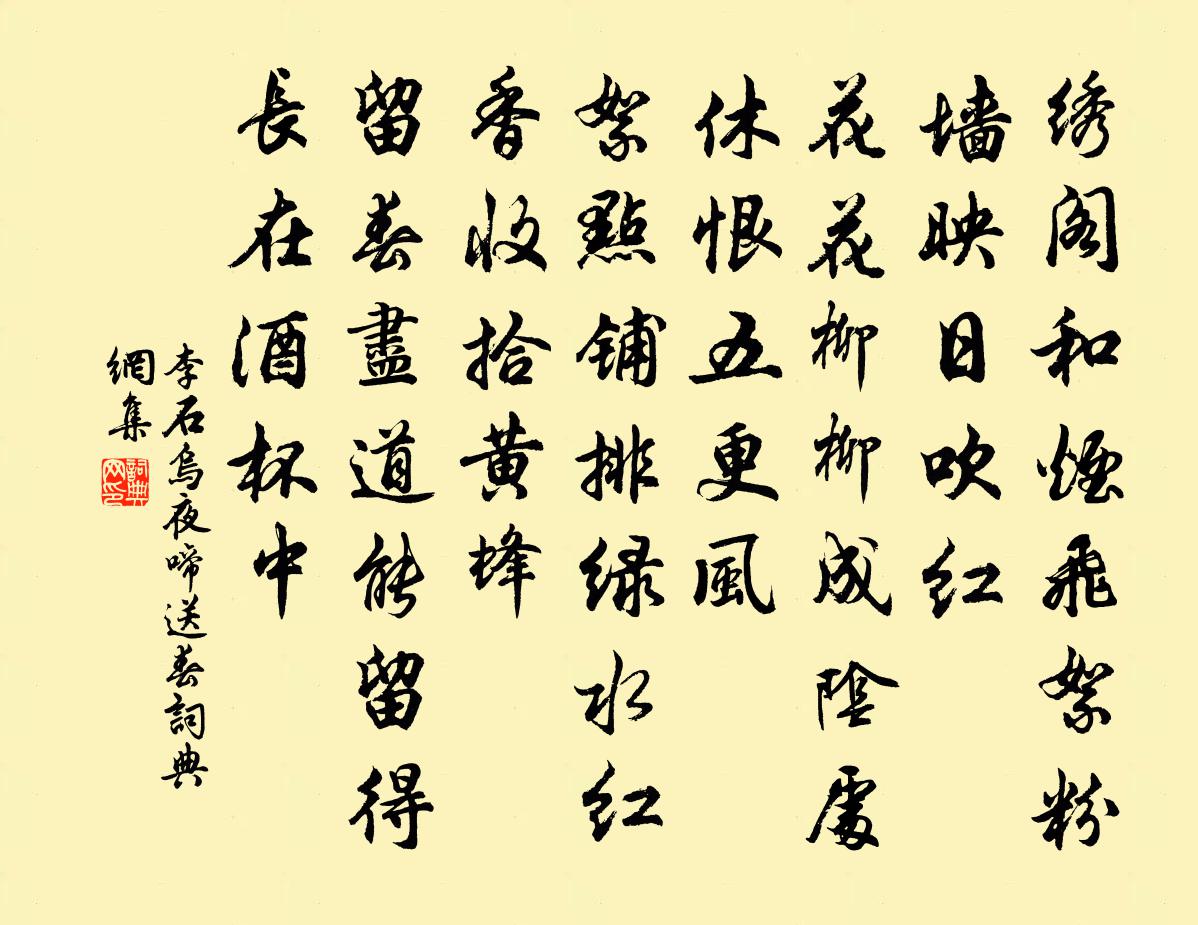 绣阁和煙飛絮粉
墙映日吹红
花花柳柳成陰處
休恨五更風
絮點铺排绿水红
香收拾黄蜂
留春盡道能留得
長在酒杯中
李石烏夜啼送春詞典
網集
詞典
网印